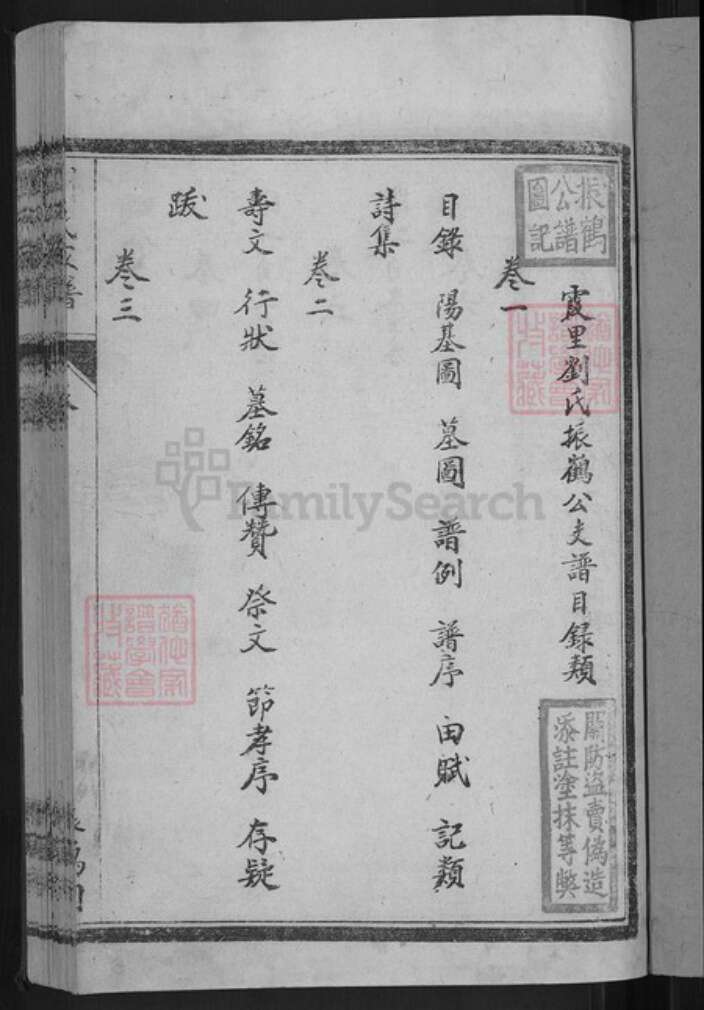 振鶴
公譜
圖記
霞里劉氏振鶴公支譜目録類
關防盜賣偽造
添註塗抹等獘
卷一
目録 陽基圖 墓圖 譜例 譜序 由賦 記類
詩集
卷二
壽文 行狀 墓銘 傳贊 祭文 節孝序 存疑
跋
卷三
FamilySearch